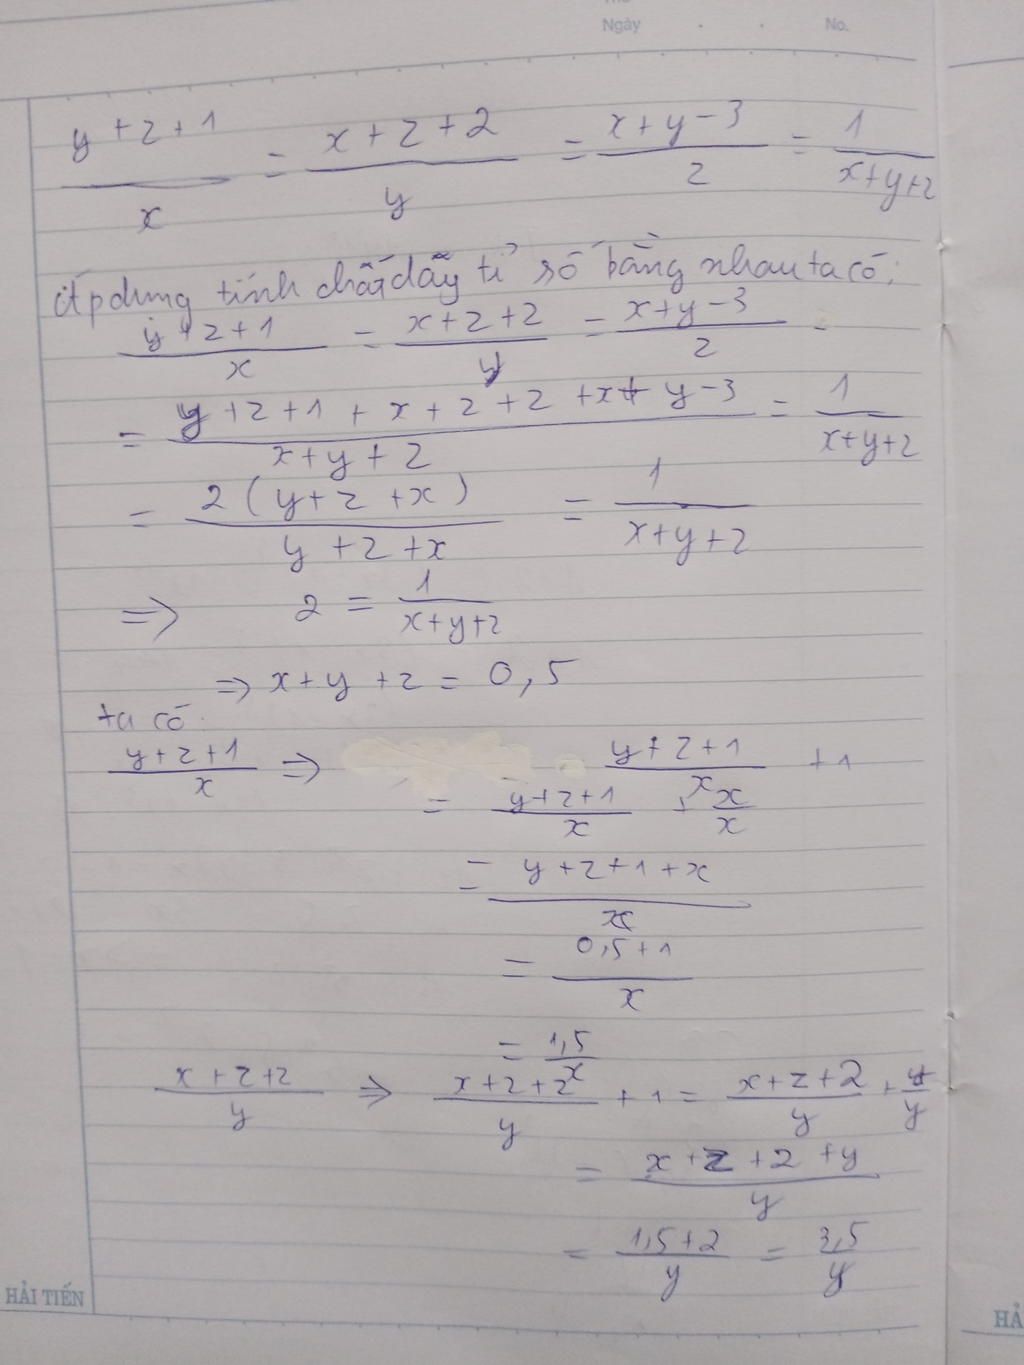 Ngày . . No.
y + z + 1 / x = x + z + 2 / y = x + y - 3 / z = 1 / x+y+z
Áp dung tính chất dãy tỉ số bằng nhau ta có;
y + z + 1 / x = x + z + 2 / y = x + y - 3 / z =
= y + z + 1 + x + z + 2 + x + y - 3 / x + y + z = 1 / x+y+z
= 2 ( y + z + x ) / y + z + x = 1 / x+y+z
=> 2 = 1 / x+y+z
=> x + y + z = 0,5
ta có
y + z + 1 / x => y + z + 1 / x + 1
= y + z + 1 / x + x / x
= y + z + 1 + x / x
= 0,5 + 1 / x
= 1,5 / x
x + z + 2 / y => x + z + 2 / y + 1 = x + z + 2 / y + y / y
= x + z + 2 + y / y
= 1,5 + 2 / y = 3,5 / y
HẢI TIẾN
HẢ